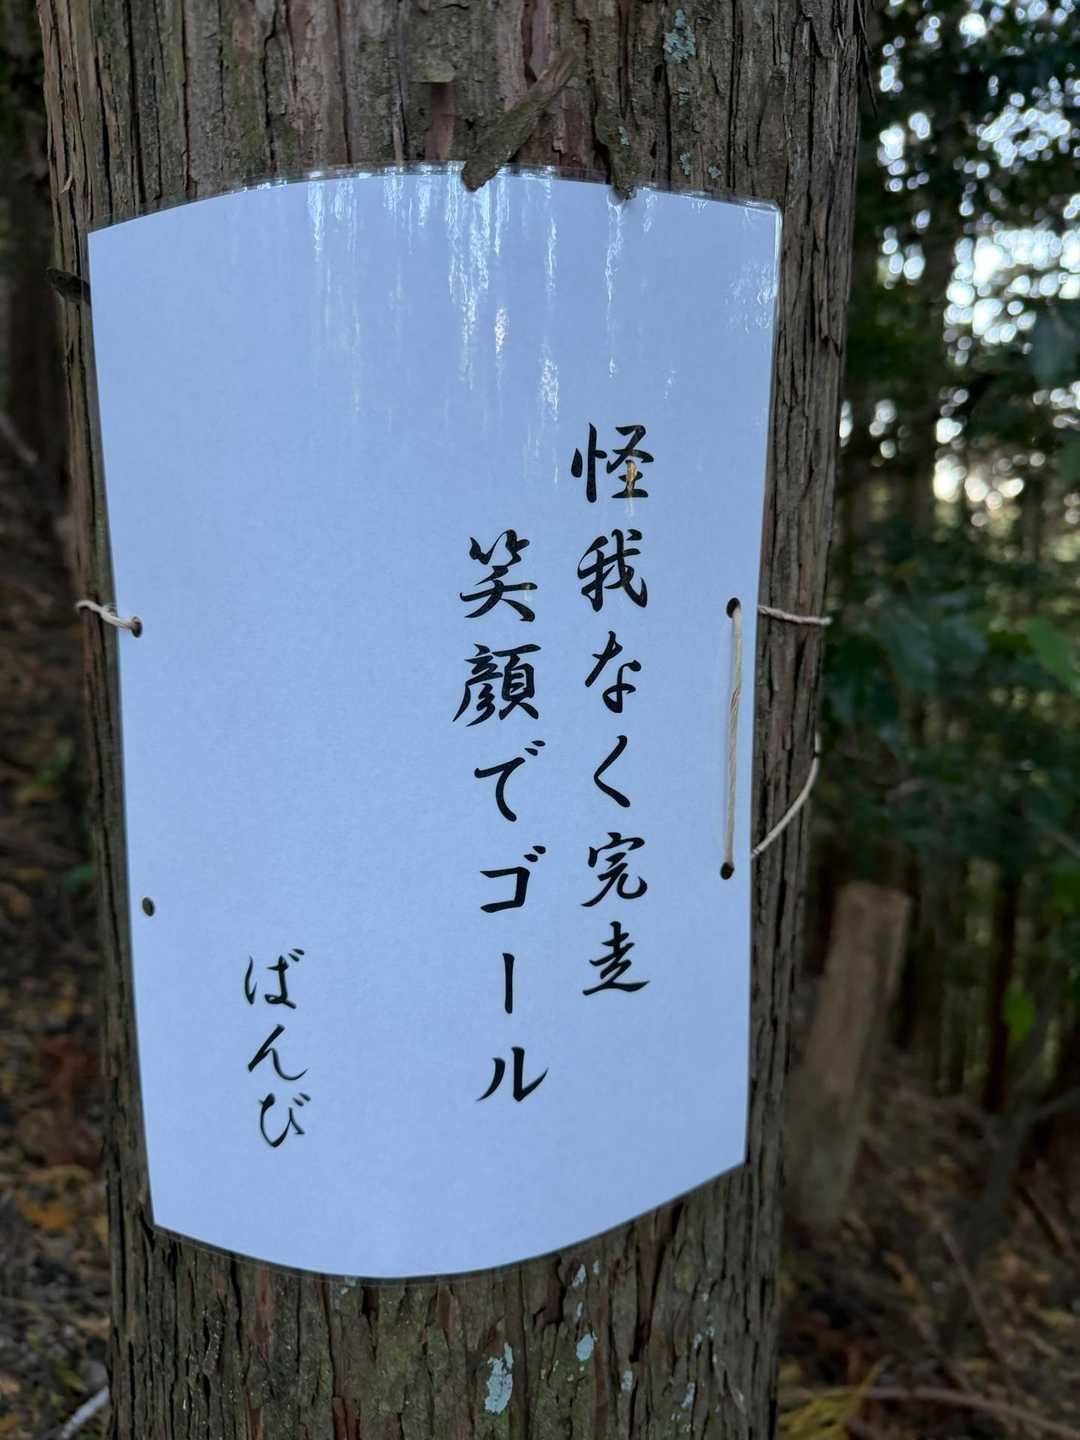 怪我なく完走
笑顔でゴール
ばんび